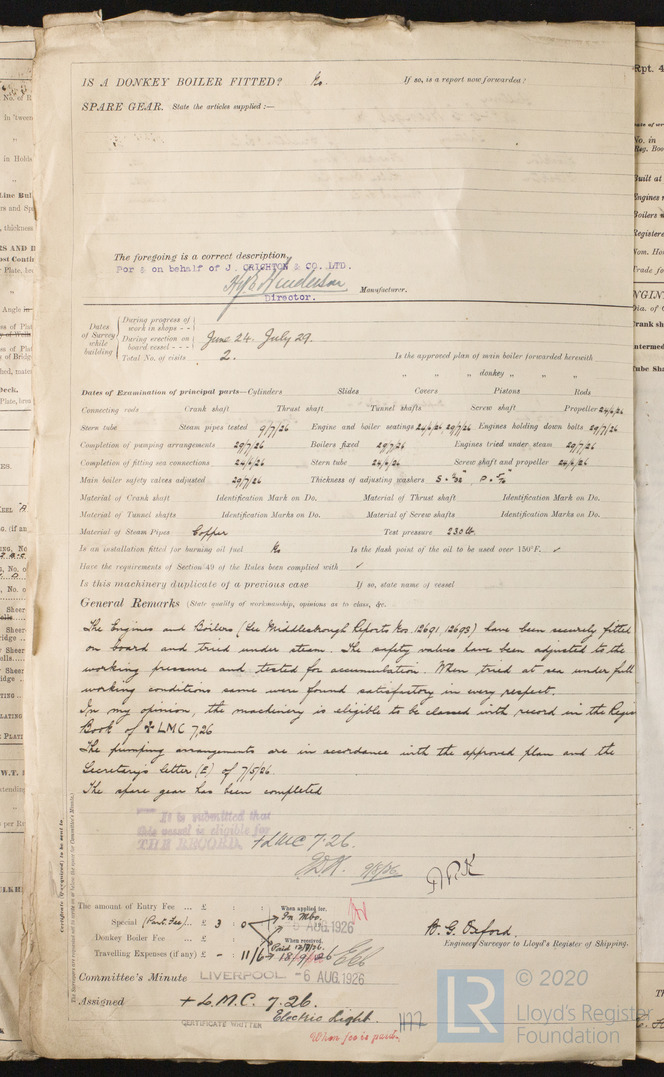 IS A DONKEY BOILER FITTED? No. If so, is a report now forwarded?
SPARE GEAR. State the articles supplied :—
The foregoing is a correct description,
For & on behalf of J. CRICHTON & CO. LTD.
Henderson
Director. Manufacturer.
Dates of Survey while building
During progress of work in shops - -
During erection on board vessel - - - June 24. July 29.
Total No. of visits 2. Is the approved plan of main boiler forwarded herewith
" " " donkey " " "
Dates of Examination of principal parts—Cylinders Slides Covers Pistons Rods
Connecting rods Crank shaft Thrust shaft Tunnel shafts Screw shaft Propeller 24/6/26
Stern tube Steam pipes tested 9/7/26 Engine and boiler seatings 24/6/26 29/7/26 Engines holding down bolts 29/7/26
Completion of pumping arrangements 29/7/26 Boilers fixed 29/7/26 Engines tried under steam 29/7/26
Completion of fitting sea connections 24/6/26 Stern tube 24/6/26 Screw shaft and propeller 24/6/26
Main boiler safety valves adjusted 29/7/26 Thickness of adjusting washers
Material of Crank shaft Identification Mark on Do. Material of Thrust shaft Identification Mark on Do.
Material of Tunnel shafts Identification Marks on Do. Material of Screw shafts Identification Marks on Do.
Material of Steam Pipes Copper Test pressure 230 lb
Is an installation fitted for burning oil fuel No Is the flash point of the oil to be used over 150°F. ✓
Have the requirements of Section 49 of the Rules been complied with ✓
Is this machinery duplicate of a previous case If so, state name of vessel
General Remarks (State quality of workmanship, opinions as to class, &c.
The Engines and Boilers (See Middlesbrough Reports Nos. 12691, 12693) have been securely fitted
on board and tried under steam. The safety valves have been adjusted to the
working pressure and tested for accumulation. When tried at sea under full
working conditions same were found satisfactory in every respect.
In my opinion, the machinery is eligible to be classed with record in the Regis
Book of ✠ LMC 7,26
The pumping arrangements are in accordance with the approved plan and the
Secretary's letter (E) of 7/5/26.
The spare gear has been completed
It is submitted that
this vessel is eligible for
THE RECORD. + LMC 7.26.
9/8/26
The amount of Entry Fee ... £ : : When applied for.
Special (Part Fee) ... £ 3 : 0 In Mbo. AUG 1926
Donkey Boiler Fee ... £ : : When received.
Travelling Expenses (if any) £ - : 11/6
A. G. Oxford.
Engineer Surveyor to Lloyd's Register of Shipping.
Committee's Minute LIVERPOOL - 6 AUG 1926
Assigned + L.M.C. 7.26.
Electric Light.
CERTIFICATE WRITTEN
When fee is paid.
© 2020
LR Lloyd's Register
Foundation